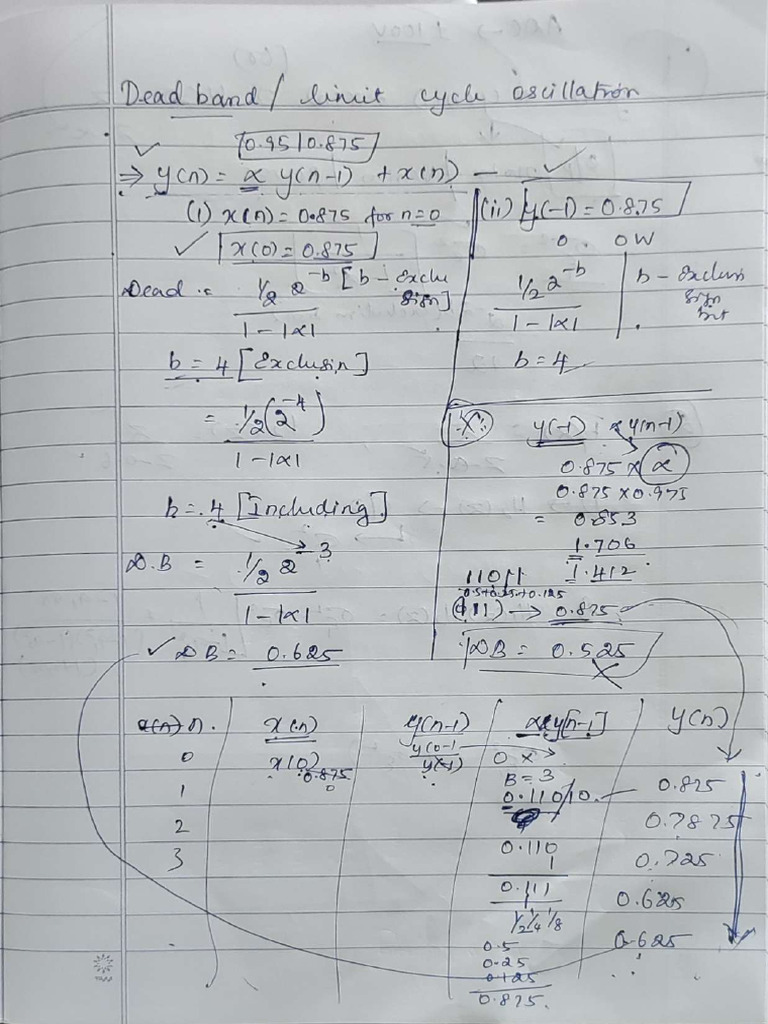 Dead band / limit cycle oscillation
0.95|0.875
⇒ y(n) = α y(n-1) + x(n) -
(i) x(n) = 0.875 for n=0
x(0) = 0.875
Dead = ½ 2^-b [b - Exclu sign]
1 - |α|
b = 4 [Exclusin]
= ½(2^-4)
1 - |α|
b = 4 [Including]
D.B = ½ 2^-3
1 - |α|
DB = 0.625
(ii) y(-1) = 0.875
0. OW
½ 2^-b | b - exclusi sign bit
1 - |α|
b = 4
1.X y(-1) α y(n-1)
0.875 × α
0.875 × 0.975
= 0.853
1.706
110|1 1.412
0.5+0.25+0.125
(111) → 0.875
DB = 0.525
n. x(n) y(n-1) αy[n-1] y(n)
0 x(0) y(0-1 0 ×
0.875 y(-1) B = 3
1 0 0.110|10. 0.875
2 0.7875
3 0.110 0.725
1
0.111 0.625
½ ¼ ⅛
0.5 0.625
0.25
0.125
0.875.